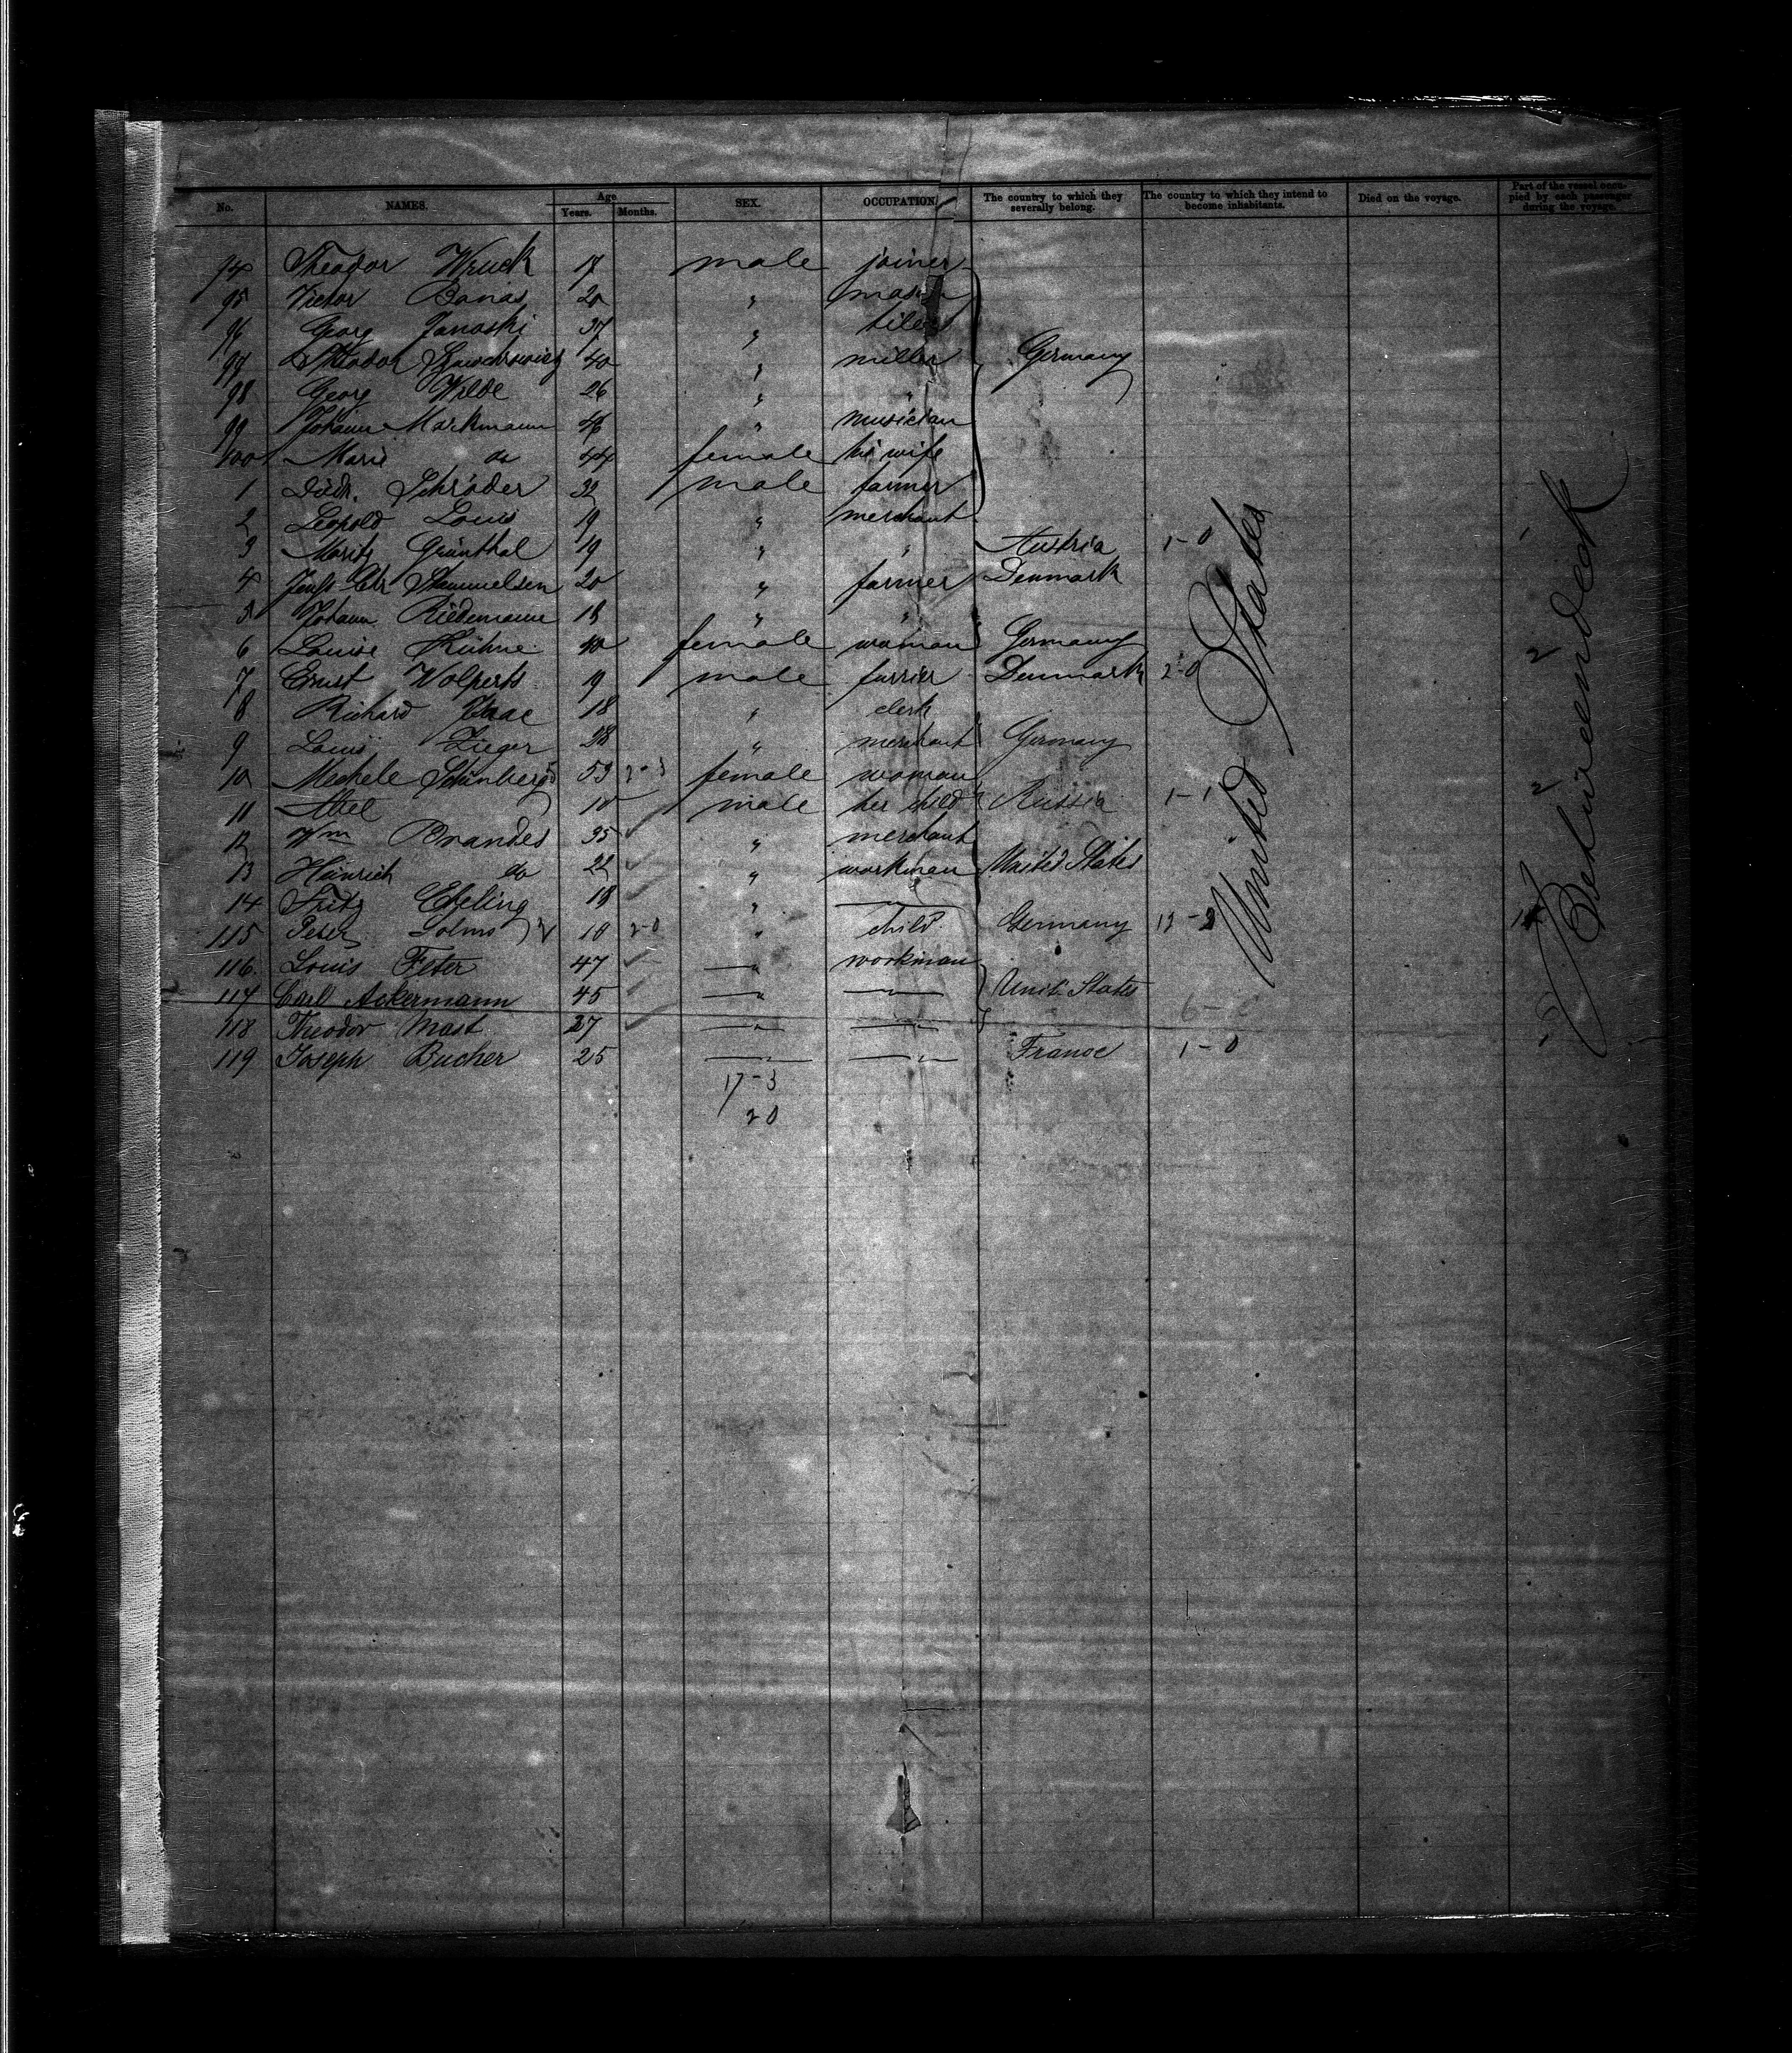 No. NAMES. Age Years. Months. SEX. OCCUPATION The country to which they severally belong. The country to which they intend to become inhabitants. Died on the voyage. Part of the vessel occupied by each passenger during the voyage.
94 Theodor Wruck 17 male joiner
95 Victor Banas 20 " mason
96 Georg Janoski 37 " tiler
97 Theodor 40 " miller Germany
98 Georg Wilde 26 " "
99 Johann Markmann 48 " musician
100 Marie do 44 female his wife
1 Died. Schröder 32 male farmer
2 Leopold Louis 19 " merchant
3 Moritz Grünthal 19 " " Austria 1-0 1
4 Chr 20 " farmer Denmark
5 Johann Riedemann 18 " "
6 Louise Kühne 40 female woman Germany 2
7 Ernst Wolperts 19 male furrier Denmark 2-0
8 Richard Isaac 18 " clerk
9 Louis Zieger 28 " merchant Germany
10 Mechele Schönberg 53 2-3 female woman
11 Abel 10 male her child Russia 1-1 2
12 Wm Brandes 35 " merchant
13 Heinrich do 22 " workman United States
14 Fritz Ebeling 18 " "
115 Peter Solms 10 2-0 " child Germany 13-3
116. Louis Feter 47 " workman
117 Carl Ackermann 45 " " Unit. States
118 Theodor Mast 27 " "
119 Joseph Bucher 25 " " France 1-0
17-3
20
United States
Betweendeck